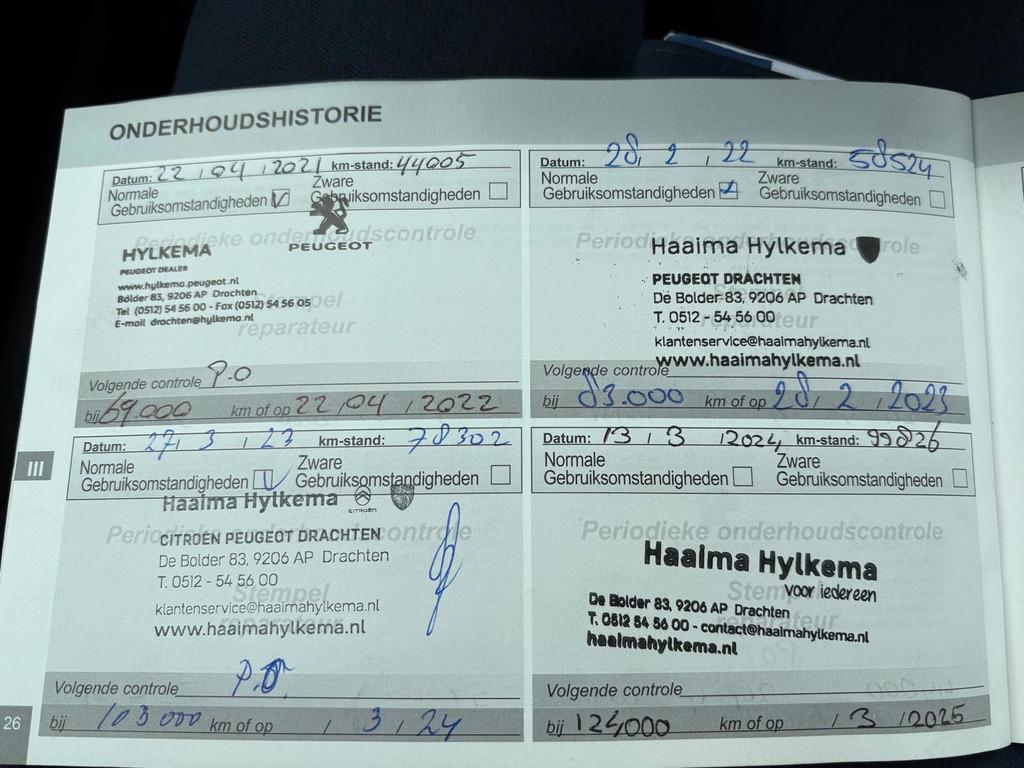 ONDERHOUDSHISTORIE
Datum: 22 / 04 / 2021 km-stand: 44005
Normale Gebruiksomstandigheden
Zware Gebruiksomstandigheden
PEUGEOT
Periodieke onderhoudscontrole
HYLKEMA
PEUGEOT DEALER
www.hylkema.peugeot.nl
Bolder 83, 9206 AP Drachten
Tel (0512) 54 56 00 - Fax (0512) 54 56 05
E-mail drachten@hylkema.nl
Stempel
reparateur
Volgende controle P.O
bij 69.000 km of op 22 / 04 / 2022
Datum: 28 / 2 / 22 km-stand: 58524
Normale Gebruiksomstandigheden
Zware Gebruiksomstandigheden
Periodieke onderhoudscontrole
Haaima Hylkema
PEUGEOT DRACHTEN
De Bolder 83, 9206 AP Drachten
T. 0512 - 54 56 00
reparateur
klantenservice@haaimahylkema.nl
www.haaimahylkema.nl
Volgende controle
bij 83.000 km of op 28 / 2 / 2023
III
Datum: 27 / 3 / 23 km-stand: 78302
Normale Gebruiksomstandigheden
Zware Gebruiksomstandigheden
Haaima Hylkema
CITROËN
Periodieke onderhoudscontrole
CITROËN PEUGEOT DRACHTEN
De Bolder 83, 9206 AP Drachten
T. 0512 - 54 56 00
Stempel
klantenservice@haaimahylkema.nl
www.haaimahylkema.nl
Volgende controle P.O.
bij 103000 km of op / 3 / 24
Datum: 13 / 3 / 2024 km-stand: 99826
Normale Gebruiksomstandigheden
Zware Gebruiksomstandigheden
Periodieke onderhoudscontrole
Haaima Hylkema
Stempel
voor iedereen
De Bolder 83, 9206 AP Drachten
reparateur
T. 0512 54 56 00 - contact@haaimahylkema.nl
haaimahylkema.nl
Volgende controle
bij 124000 km of op / 3 / 2025
26